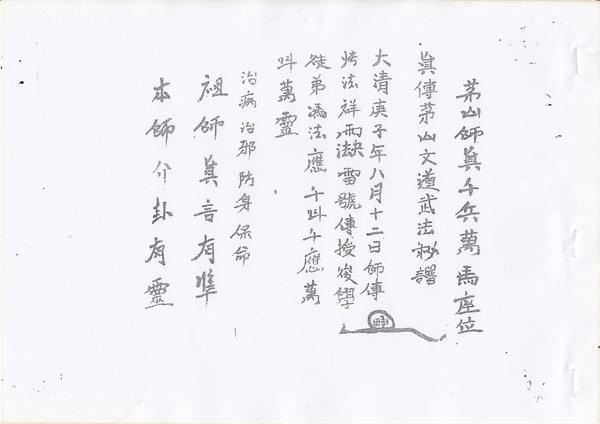 茅山師眞千兵萬馬座位
眞傳茅山文道武法秘譜
大清庚子年八月十二日師傳
法祥雨法雷號傳授後學
徒弟馮法應千叫千應萬
叫萬靈
治病治邪防身保命
祖師眞言有準
本師介卦有靈